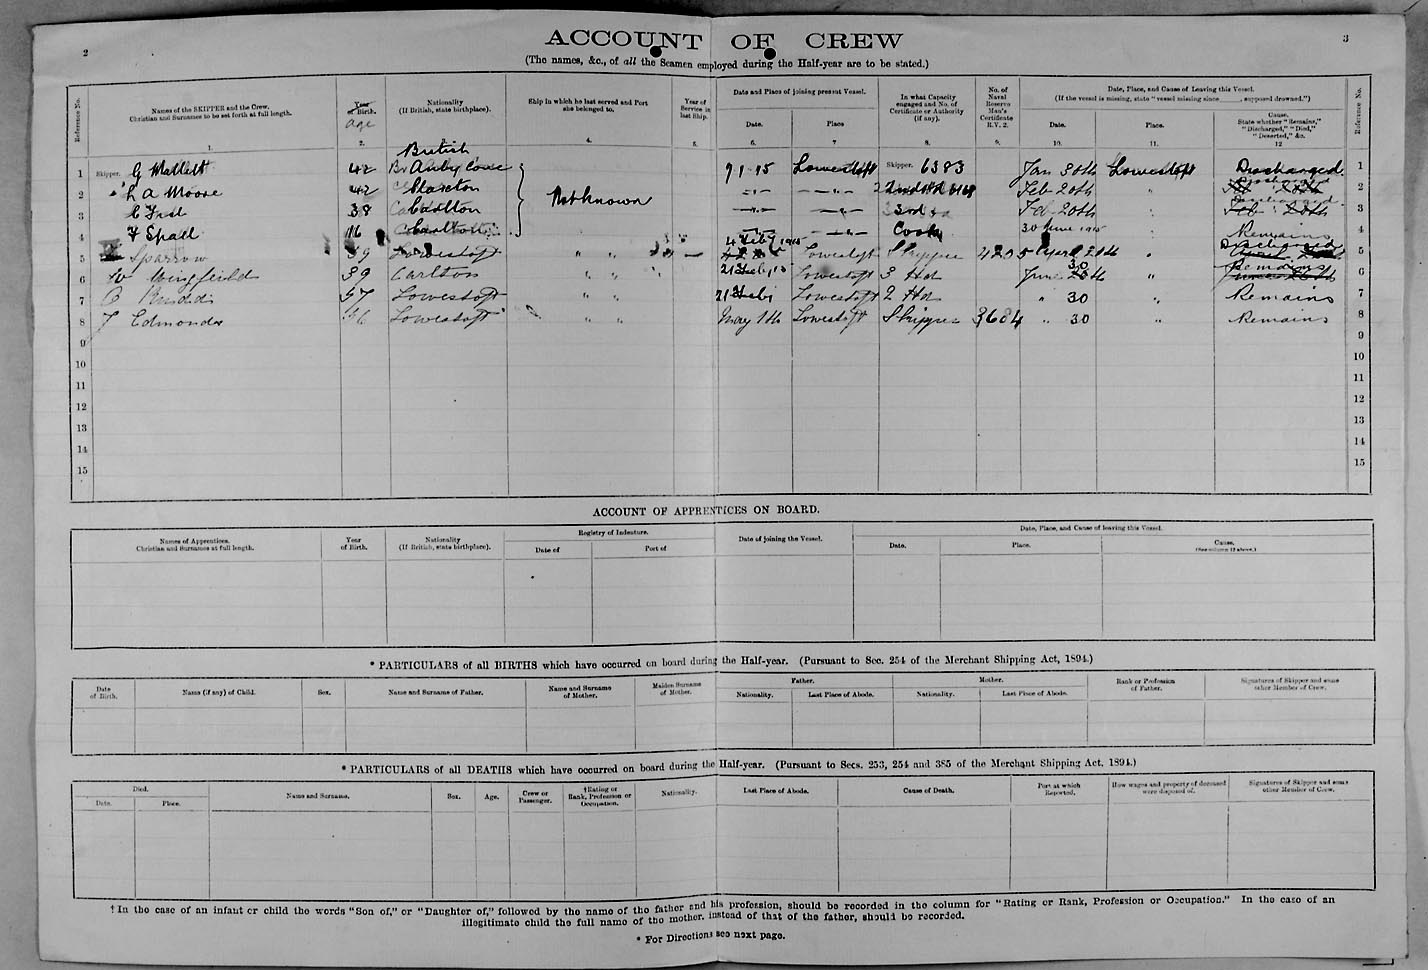 2
3
ACCOUNT OF CREW
(The names, &c., of all the Seamen employed during the Half-year are to be stated.)
Reference No. Names of the SKIPPER and the Crew. Christian and Surnames to be set forth at full length. Year of Birth. age Nationality (If British, state birthplace). Ship in which he last served and Port she belonged to. Year of Service in last Ship. Date and Place of joining present Vessel. Date. Place In what Capacity engaged and No. of Certificate or Authority (if any). No. of Naval Reserve Man's Certificate R.V. 2. Date, Place, and Cause of Leaving this Vessel. (If the vessel is missing, state "vessel missing since , supposed drowned.") Date. Place. Cause. State whether "Remains," "Discharged," "Died," "Deserted," &c. Reference No.
1. 2. 3. 4. 5. 6. 7 8. 9. 10. 11. 12
British
1 Skipper. G 42 9 1 15 Lowestoft Skipper. 6383 Jan 30th Lowestoft Discharged 1
2 L A Moore 42 Not known 2nd Hd Feb 20th " 2
3 C 38 Carlton 3rd Feb 20th 3
4 F Spall 16 Carlton Cook 30 June 1915 Remains 4
4 Feby 1915
5 Sparrow 39 Lowestoft " " Lowestoft Skipper 4205 April 20th " Discharged 5
6 W Wingfield 39 Carlton " " 21 Feby 15 Lowestoft 3 Hd June 30 " Remains 6
7 57 Lowestoft " " 21 Feby Lowestoft 2 Hd " 30 Remains 7
8 J Edmonds 56 Lowestoft " " May 1th Lowestoft Skipper 3684 " 30 " Remains 8
9 9
10 10
11 11
12 12
13 13
14 14
15 15
ACCOUNT OF APPRENTICES ON BOARD.
Names of Apprentices. Christian and Surnames at full length. Year of Birth. Nationality (If British, state birthplace). Registry of Indenture. Date of Port of Date of joining the Vessel. Date, Place, and Cause of leaving this Vessel. Date. Place. Cause. (See column 12 above.)
* PARTICULARS of all BIRTHS which have occurred on board during the Half-year. (Pursuant to Sec. 254 of the Merchant Shipping Act, 1894.)
Date of Birth. Name (if any) of Child. Sex. Name and Surname of Father. Name and Surname of Mother. Maiden Surname of Mother. Father. Nationality. Last Place of Abode. Mother. Nationality. Last Place of Abode. Rank or Profession of Father. Signatures of Skipper and some other Member of Crew.
* PARTICULARS of all DEATHS which have occurred on board during the Half-year. (Pursuant to Secs. 253, 254 and 385 of the Merchant Shipping Act, 1894.)
Died. Date. Place. Name and Surname. Sex. Age. Crew or Passenger. †Rating or Rank, Profession or Occupation. Nationality. Last Place of Abode. Cause of Death. Port at which Reported. How wages and property of deceased were disposed of. Signatures of Skipper and some other Member of Crew.
† In the case of an infant or child the words "Son of," or "Daughter of," followed by the name of the father and his profession, should be recorded in the column for "Rating or Rank, Profession or Occupation." In the case of an
illegitimate child the full name of the mother, instead of that of the father, should be recorded.
* For Directions see next page.